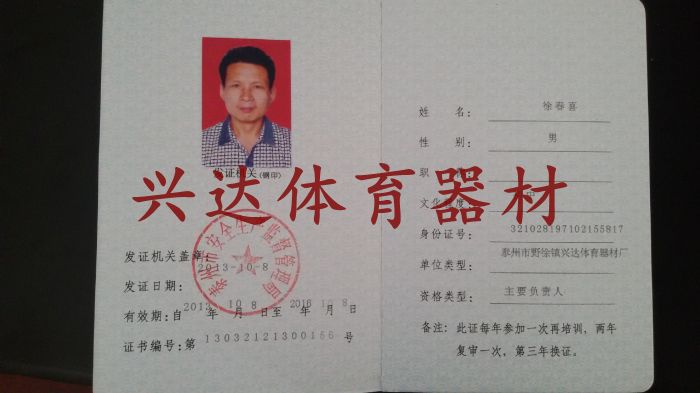 发证机关(钢印)
兴达体育器材
泰州市安全生产监督管理局
发证机关盖章:
2013-10-8
发证日期:
2013 10 8 2016 10 8
有效期:自 年 月 日至 年 月 日
证书编号:第 13032121300156 号
姓 名: 徐春喜
性 别: 男
职
文化程度: 中
身份证号: 321028197102155817
单位类型: 泰州市野徐镇兴达体育器材厂
资格类型: 主要负责人
备注:此证每年参加一次再培训,两年
复审一次,第三年换证。